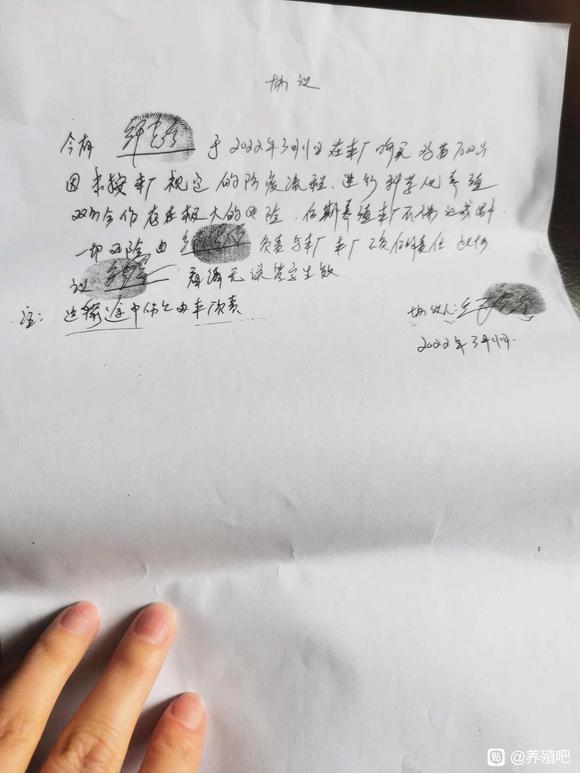 协议
今有 于2022年3月1日在本厂购买鸡苗700只
因未按本厂规定的防疫流程.进行科学化养殖
双方合作存在极大的风险.后期养殖本厂不保
一切风险由 负责与本厂 本厂不负任何责任 此协
议 看清无误签字生效
注:运输途中伤亡由本厂负责
协议人:
2022年3月1日.
贴 @养殖吧